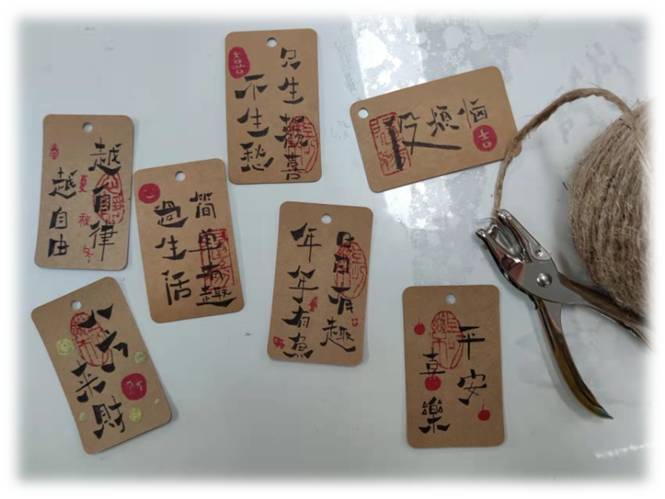 只生歡喜
不生愁
沒煩惱
吉
越自律
越自由
簡單有趣
過生活
日日有趣
年年有魚
八方來財
平安
喜樂